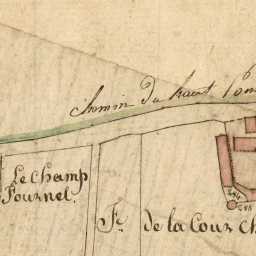 chemin du haut
Le Champ
Fournel.
Fr. de la Cour